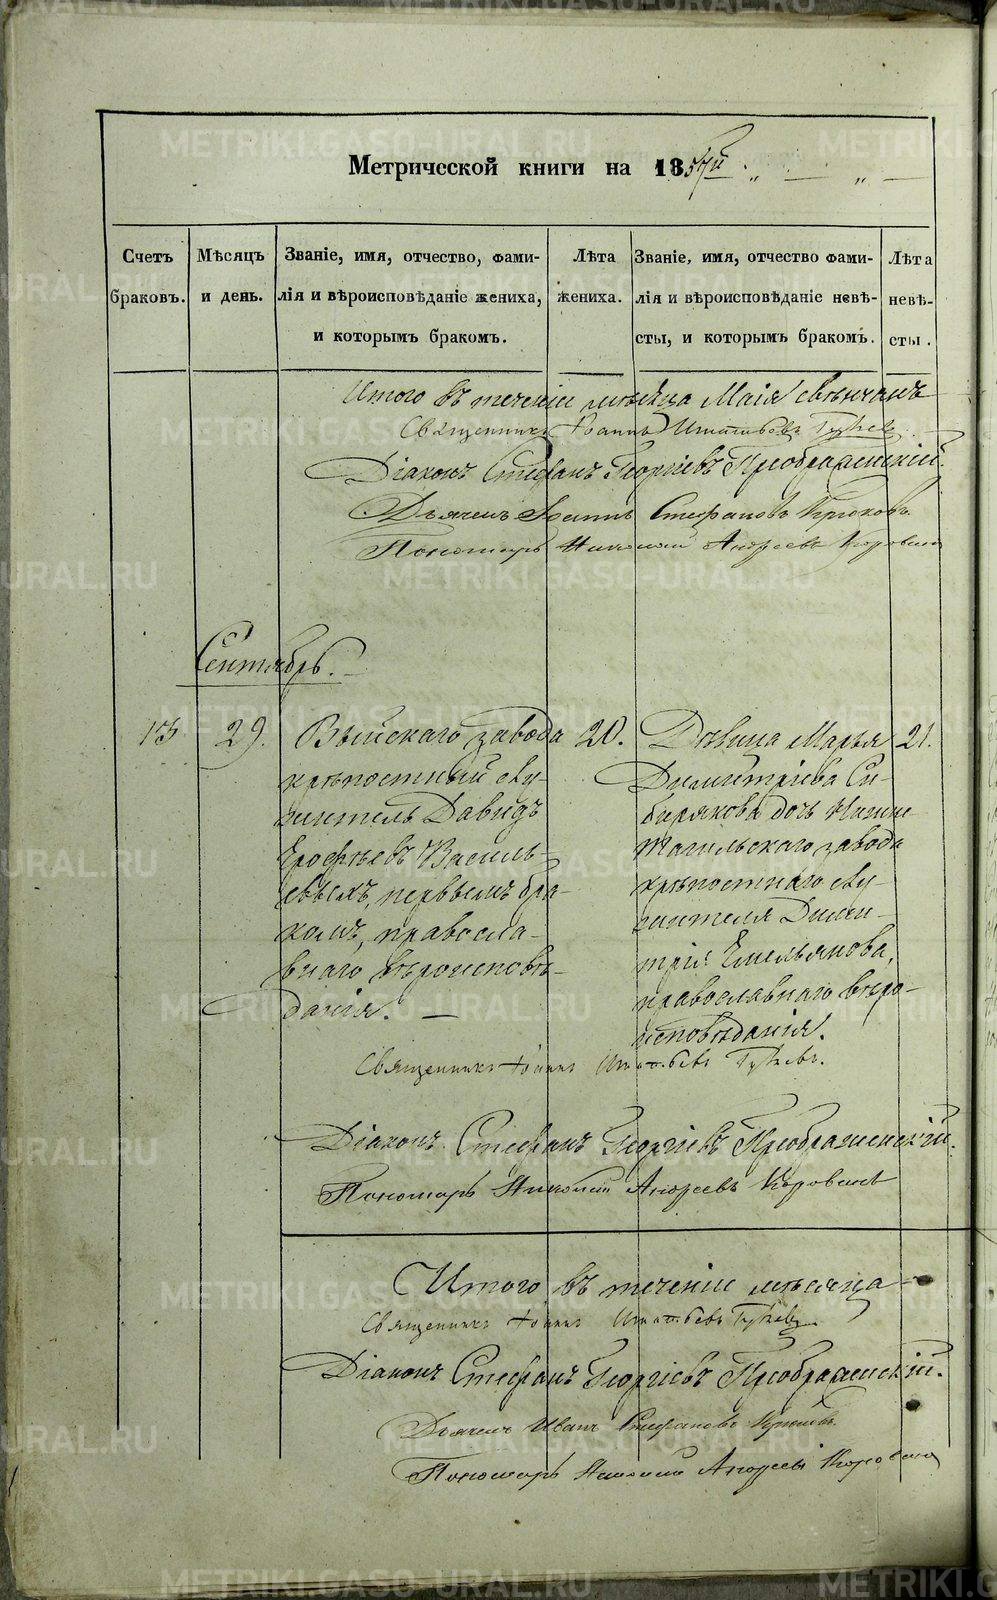 Метрической книги на 1857й
Счетъ браковъ.
Мѣсяцъ и день.
Званіе, имя, отчество, фами-
лія и вѣроисповѣданіе жениха,
и которымъ бракомъ.
Лѣта жениха.
Званіе, имя, отчество фами-
лія и вѣроисповѣданіе невѣ-
сты, и которымъ бракомъ.
Лѣта невѣ-
сты.
Итого въ теченіи мѣсяца Маія свѣнчанъ
Священникъ Іоаннъ
Діаконъ Стефанъ Георгіевъ Преображенскій.
Дьячекъ Іоаннъ Стефановъ Крюковъ.
Пономарь Николай Андреевъ Коровинъ
Сентябрь.
29.
Выйскаго завода
крѣпостный слу-
житель Давидъ
Ерофѣевъ Василь-
евыхъ, первымъ бра-
комъ, правосла-
внаго вѣроисповѣ-
данія.
20.
Дѣвица Марья
Димитріева Си-
бирякова дочь Нижне-
тагильскаго завода
крѣпостнаго слу-
жителя Дими-
трія Емельянова,
православнаго вѣро-
исповѣданія.
21.
Священникъ Іоаннъ
Діаконъ Стефанъ Георгіевъ Преображенскій.
Пономарь Николай Андреевъ Коровинъ
Итого въ теченіи мѣсяца
Священникъ Іоаннъ
Діаконъ Стефанъ Георгіевъ Преображенскій.
Дьячекъ Иванъ Стефановъ Крюковъ.
Пономарь Николай Андреевъ Коровинъ
METRIKI.GASO-URAL.RU